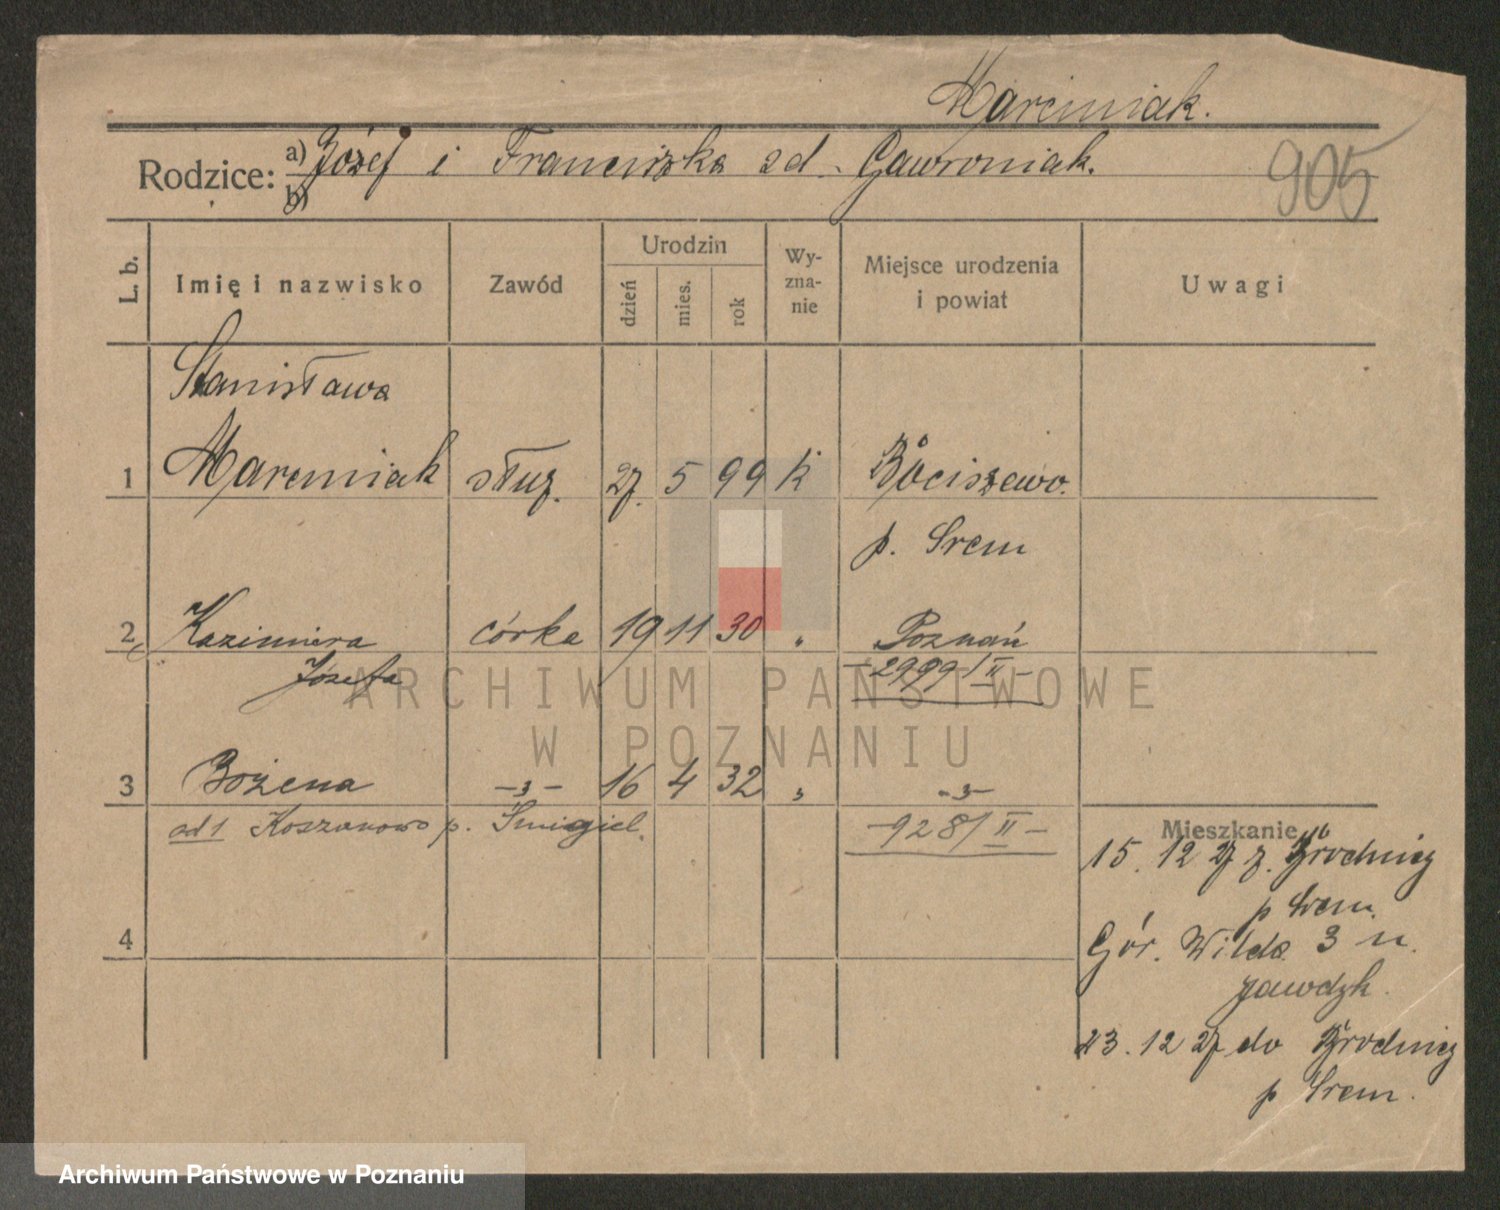 Marciniak.
Rodzice: a) Józef i Franciszka zd. Gawroniak.
b)
905
L. b.
Imię i nazwisko
Zawód
Urodzin
dzień
mies.
rok
Wy-
zna-
nie
Miejsce urodzenia
i powiat
Uwagi
Stanisława
1 Marciniak służ. 27. 5 99 k Bociszewo.
p. Śrem
2 Kazimiera córka 19 11 30 " Poznań
Józefa -2999/II-
3 Bożena -„- 16 4 32 " -„-
ad 1 Koszanowo p. Śmigiel. -928/II-
Mieszkanie
15. 12 27 z. Brodnicy
p Śrem.
4
Gór. Wilda 3 u.
23. 12 27 do Brodnicy
p Śrem.
ARCHIWUM PAŃSTWOWE
W POZNANIU
Archiwum Państwowe w Poznaniu